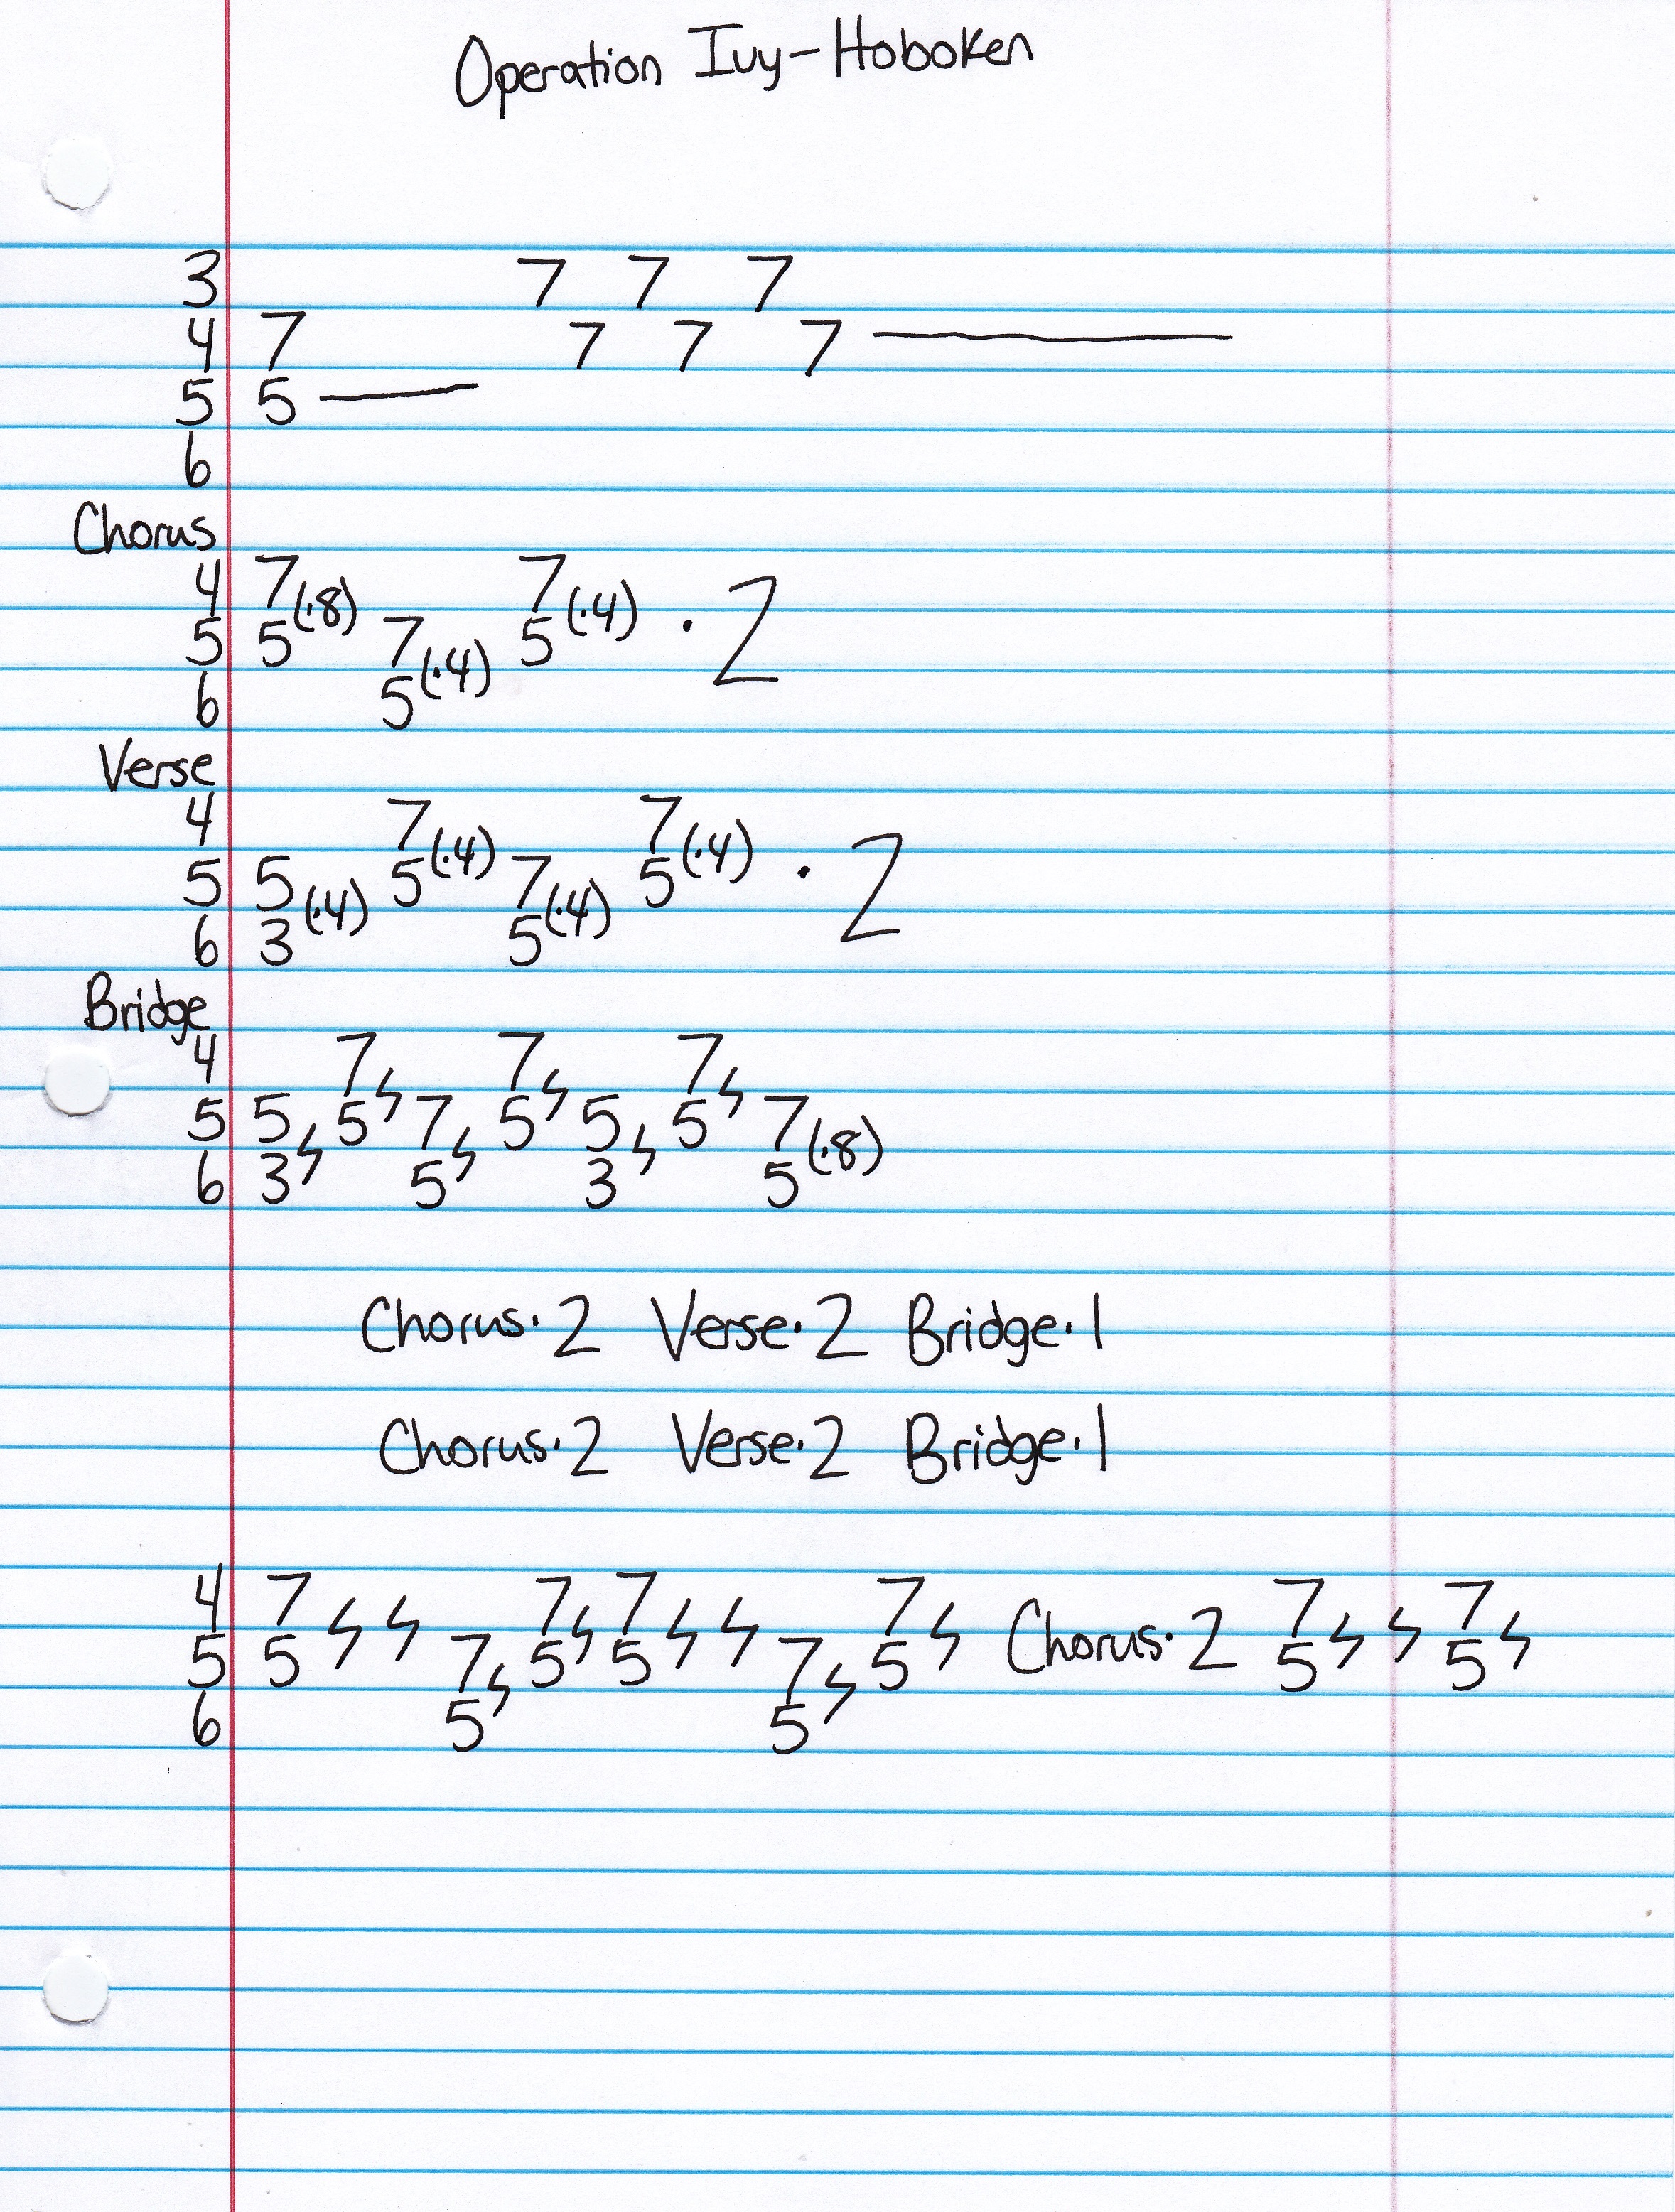 Operation Ivy-Hoboken
3 7 7 7
4 7 7 7 7 ——
5 5 ——
6
Chorus
4 7 (·8) 7 (·4) · 2
5 5 7 (·4) 5
6 5
Verse
4 7 (·4) 7 (·4) · 2
5 5 (·4) 5 7 (·4) 5
6 3 5
Bridge
4 7 7 7
5 5 5 7 5 5 5 7 (·8)
6 3 5 3 5
Chorus·2 Verse·2 Bridge·1
Chorus·2 Verse·2 Bridge·1
4 7 7 7 7 Chorus·2 7 7
5 5 7 5 5 7 5 5 5
6 5 5